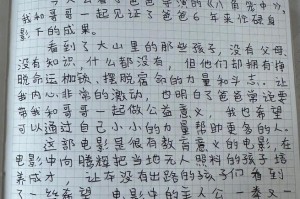 我和哥哥一起见证了爸爸6年来忙碌身
影下的成果。
看到了大山里的那些孩子,没有父母,
没有知识,什么都没有,但他们却拥有挣
脱命运枷锁、摆脱宿命的力量和斗志。让
我内心非常的激动,也明白了爸爸常说要
带我和哥哥一起做公益意义,我也希望
可以通过自己小小的力量帮助更多的人。
这部电影是很有教育意义的电影,在
电影中向腾辉把当地无人照料的孩子培
养成才,让本没有出路的孩子们看到
了一丝希望
电影中的主人公